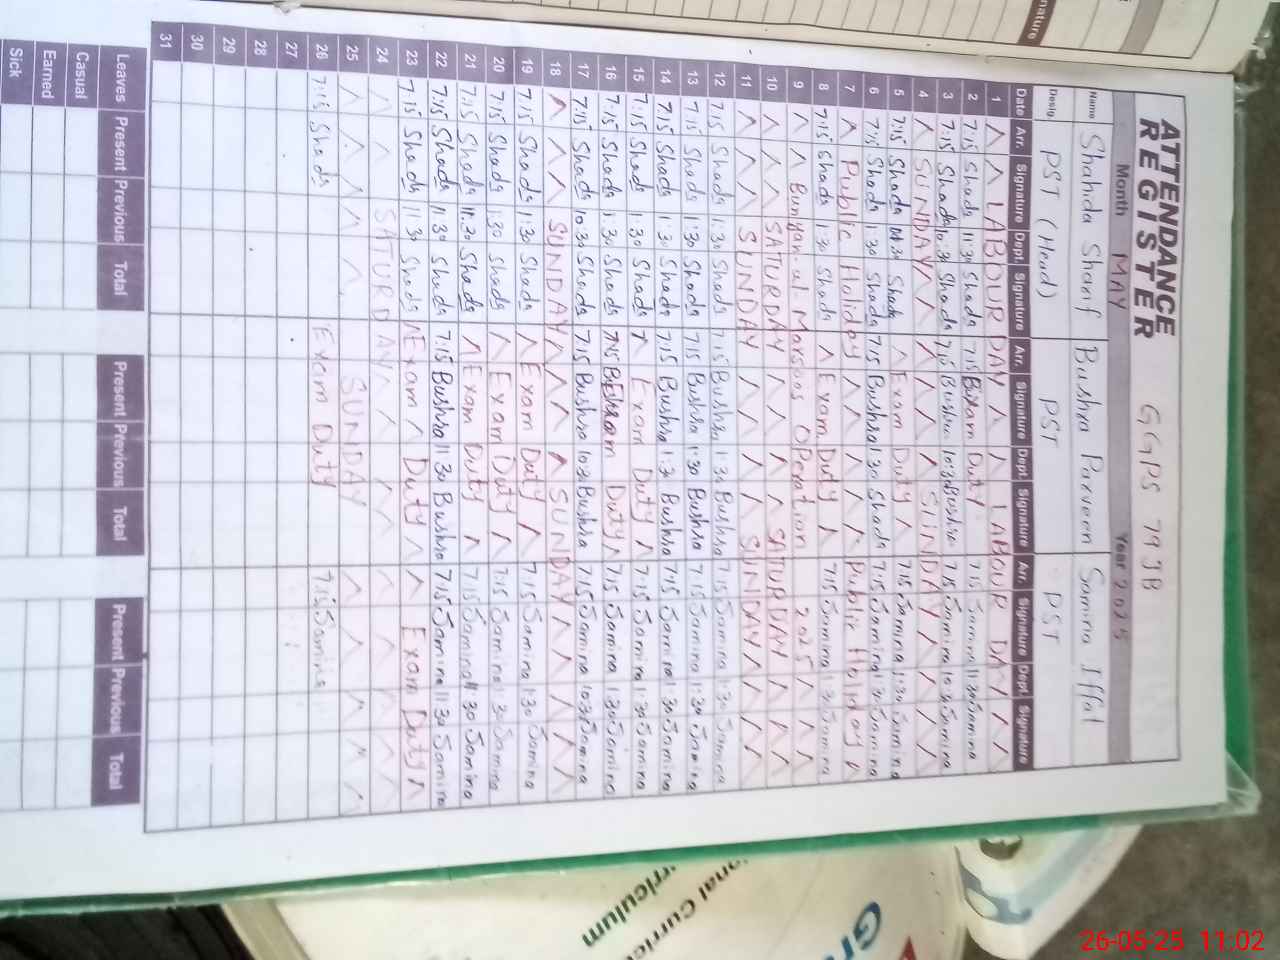 ATTENDANCE REGISTER GGPS 79 JB
Month MAY Year 2025
Name Shahida Sharif Bushra Parveen Samina Iffat
Desig. PST (Head) PST PST
Date Arr. Signature Dept. Signature Arr. Signature Dept. Signature Arr. Signature Dept. Signature
1 LABOUR DAY LABOUR DAY
2 7:15 Shada 11:30 Shada 7:15 Exam Duty 7:15 Samina 11:30 Samina
3 7:15 Shada 10:30 Shada 7:15 Bushra 10:30 Bushra 7:15 Samina 10:30 Samina
4 SUNDAY SUNDAY
5 7:15 Shada Shada Exam Duty 7:15 Samina 1:30 Samina
6 7:15 Shada 1:30 Shada 7:15 Bushra 1:30 Shada 7:15 Samina 1:30 Samina
7 Public Holiday Public Holiday
8 7:15 Shada 1:30 Shada Exam Duty 7:15 Samina 1:30 Samina
9 Bunyan-ul-Marsoos Operation 2025
10 SATURDAY SATURDAY
11 SUNDAY SUNDAY
12 7:15 Shada 1:30 Shada 7:15 Bushra 1:30 Bushra 7:15 Samina 1:30 Samina
13 7:15 Shada 1:30 Shada 7:15 Bushra 1:30 Bushra 7:15 Samina 1:30 Samina
14 7:15 Shada 1:30 Shada 7:15 Bushra 1:30 Bushra 7:15 Samina 1:30 Samina
15 7:15 Shada 1:30 Shada Exam Duty 7:15 Samina 1:30 Samina
16 7:15 Shada 1:30 Shada 7:15 Exam Duty 7:15 Samina 1:30 Samina
17 7:15 Shada 10:30 Shada 7:15 Bushra 10:30 Bushra 7:15 Samina 10:30 Samina
18 SUNDAY SUNDAY
19 7:15 Shada 1:30 Shada Exam Duty 7:15 Samina 1:30 Samina
20 7:15 Shada 1:30 Shada Exam Duty 7:15 Samina 1:30 Samina
21 7:15 Shada 11:30 Shada Exam Duty 7:15 Samina 11:30 Samina
22 7:15 Shada 11:30 Shada 7:15 Bushra 11:30 Bushra 7:15 Samina 11:30 Samina
23 7:15 Shada 11:30 Shada Exam Duty Exam Duty
24 SATURDAY
25 SUNDAY
26 7:15 Shada Exam Duty 7:15 Samina
27
28
29
30
31
Leaves Present Previous Total Present Previous Total Present Previous Total
Casual
Earned
Sick
nature
Curric
rriculum
Gr
26-05-25 11:02